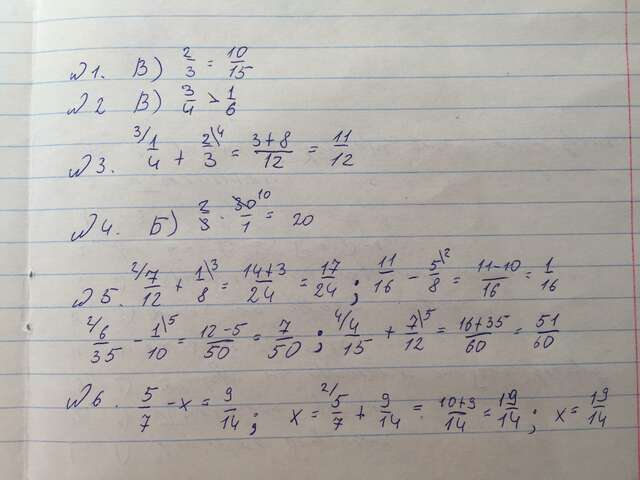 №1. В) 2/3 = 10/15
№2 В) 3/4 > 1/6
№3. ³/1/4 + 2\⁴/3 = 3+8/12 = 11/12
№4. Б) 2/3 · 30¹⁰/1 = 20
№5. ²/7/12 + 1\³/8 = 14+3/24 = 17/24 ; 11/16 - 5\²/8 = 11-10/16 = 1/16
²/6/35 - 1\⁵/10 = 12-5/50 = 7/50 ; ⁴/4/15 + 7\⁵/12 = 16+35/60 = 51/60
№6. 5/7 - x = 9/14 ; x = ²/5/7 + 9/14 = 10+9/14 = 19/14 ; x = 19/14